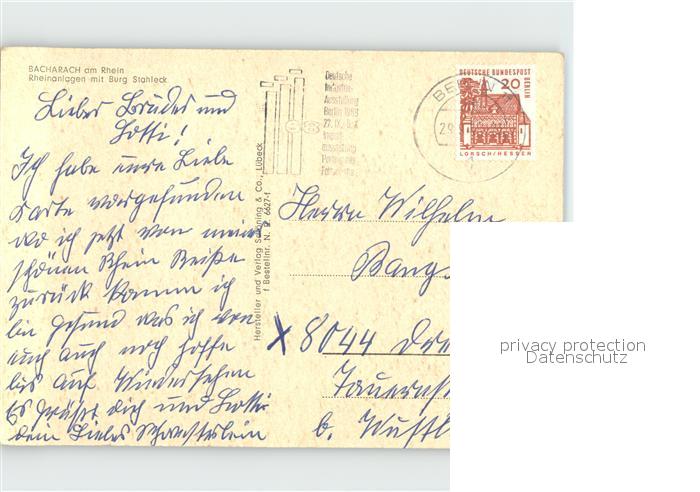 BACHARACH am Rhein
Rheinanlagen mit Burg Stahleck
Lieber Bruder und
Lotti!
Ich habe eure Liebe
Karte vorgefunden
wo ich jetzt von meiner
schönen Rhein Reiße
zurück kamm ich
bin gesund was ich von
euch auch noch hoffe
bis auf Wiedersehen
Es grüßt dich und Lotti
dein Liebes Schwesterlein
Hersteller und Verlag Schöning & Co., Lübeck
Bestellnr. 6627-1
Deutsche
Industrie-
Ausstellung
Berlin
BERLIN
DEUTSCHE BUNDESPOST
BERLIN
20
LORSCH/HESSEN
Herrn Wilhelm
Bang
X 8044 Dre
b.
privacy protection
Datenschutz